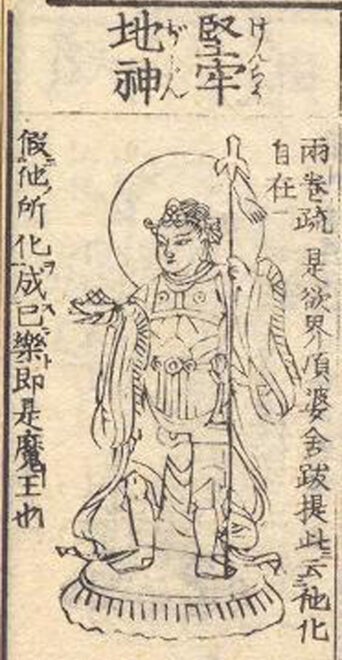 堅牢
地神
ぢじん
兩卷疏 是欲界頂婆舍跋提此云他化
自在
假他所化成已樂即是魔王也